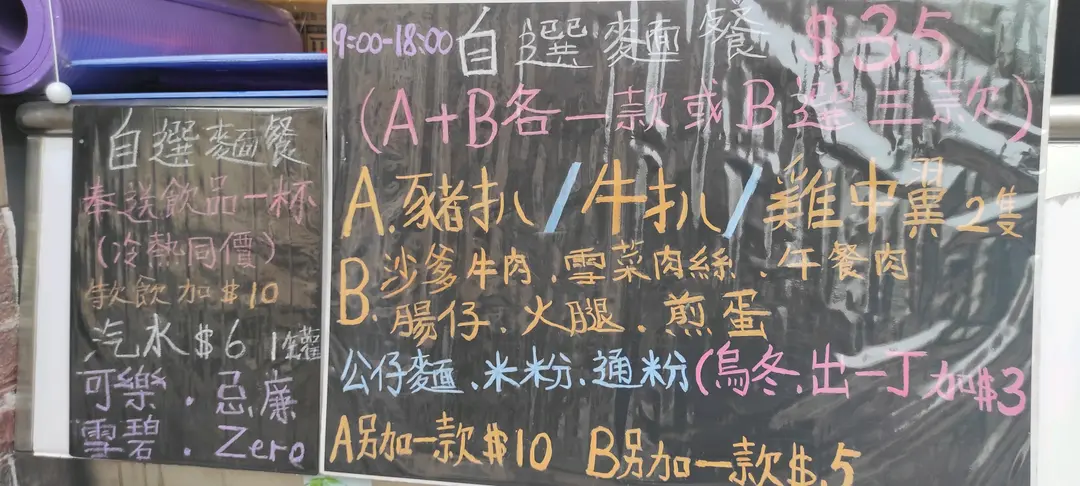 自選麵餐
奉送飲品一杯
(冷熱同價)
凍飲加$10
汽水$6 1罐
可樂.忌廉
雪碧.Zero
9:00-18:00 自選麵餐 $35
(A+B各一款或B選三款)
A.豬扒/牛扒/雞中翼2隻
B.沙爹牛肉.雪菜肉絲.午餐肉
腸仔.火腿.煎蛋
公仔麵.米粉.通粉(烏冬.出一丁加$3
A另加一款$10 B另加一款$.5